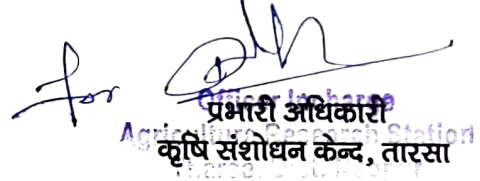 for
Officer Incharge
प्रभारी अधिकारी
Agriculture Research Station
कृषि संशोधन केन्द, तारसा